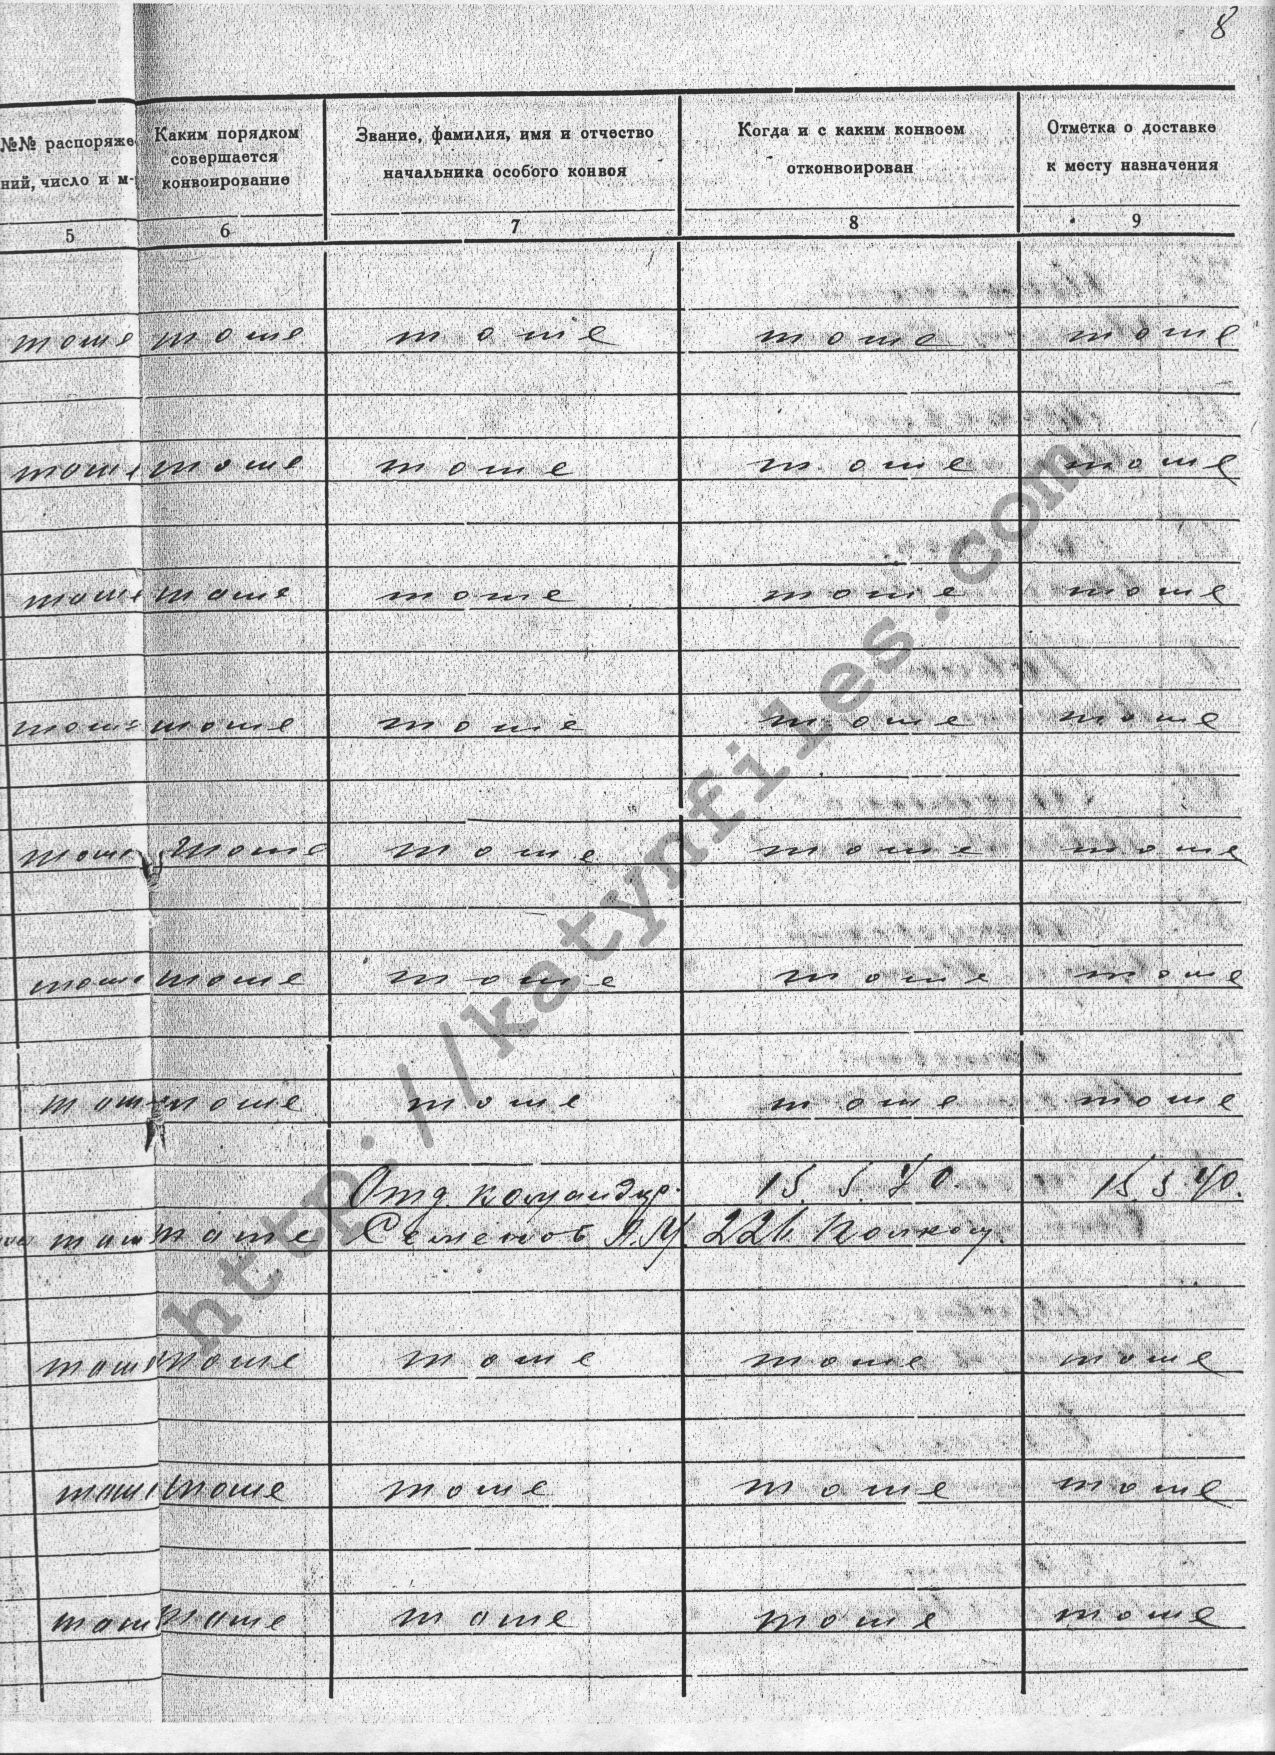 8
№№ распоряже-
ний, число и м-
Каким порядком
совершается
конвоирование
Звание, фамилия, имя и отчество
начальника особого конвоя
Когда и с каким конвоем
отконвоирован
Отметка о доставке
к месту назначения
5 6 7 8 9
тоже тоже тоже тоже тоже
тоже тоже тоже тоже тоже
тоже тоже тоже тоже тоже
тоже тоже тоже тоже тоже
тоже тоже тоже тоже тоже
тоже тоже тоже тоже тоже
тоже тоже тоже тоже тоже
Отд. командир. 15. 5. 40. 15. 5. 40.
тоже тоже Семенов 226 Полком.
тоже тоже тоже тоже тоже
тоже тоже тоже тоже тоже
тоже тоже тоже тоже тоже
http://katynfiles.com